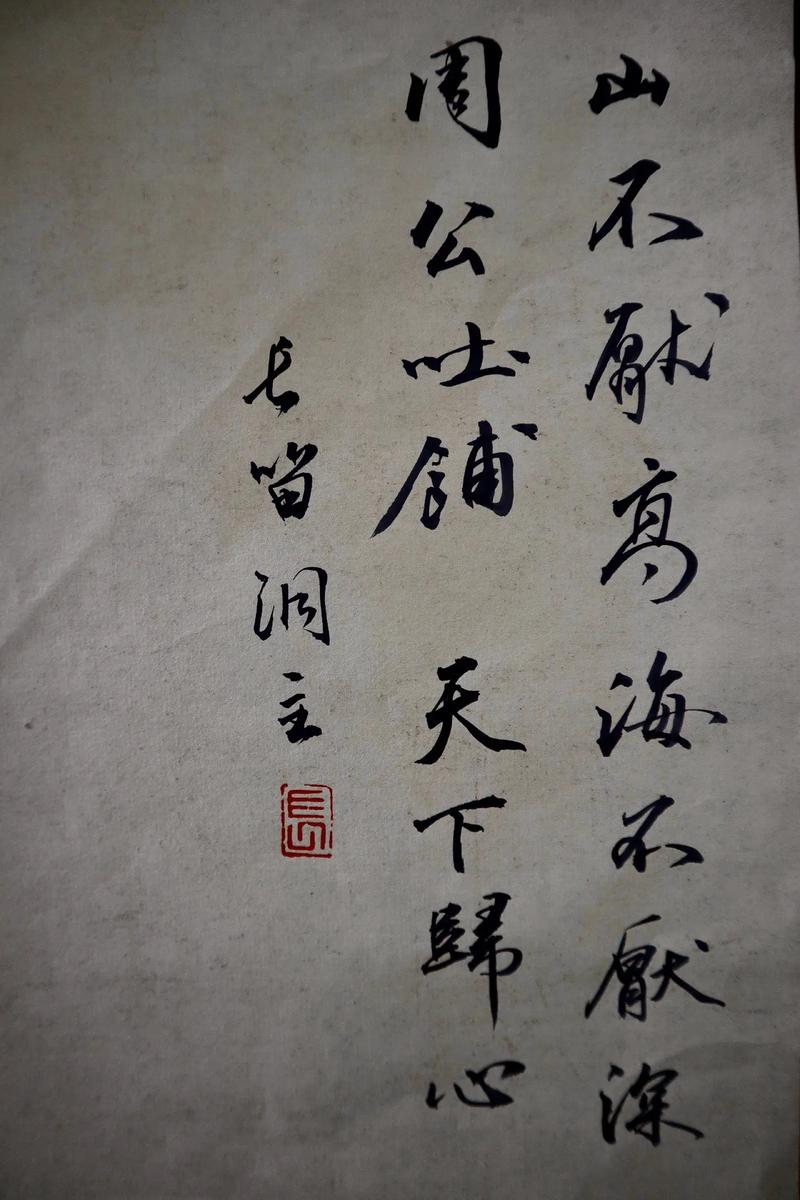 山不厭高海不厭深
周公吐餔 天下歸心
长留洞主